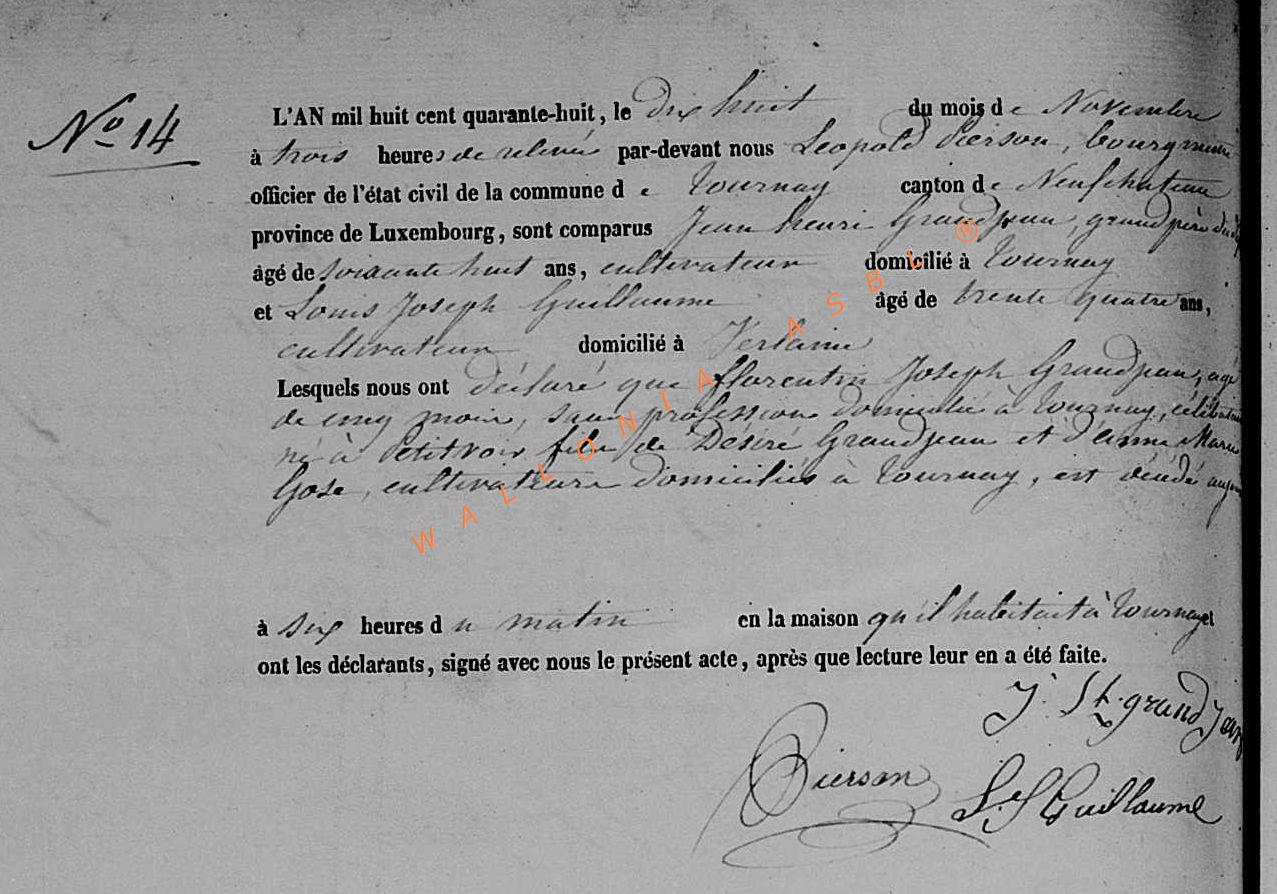 No 14
L'AN mil huit cent quarante-huit, le dix huit du mois de Novembre
à trois heures de relevée par-devant nous Léopold Pierson, bourgmestre
officier de l'état civil de la commune de Tournay canton de Neufchateau
province de Luxembourg, sont comparus Jean henri Grandjean, grandpère du
âgé de soixante huit ans, cultivateur domicilié à Tournay
et Louis Joseph Guillaume âgé de trente quatre ans,
cultivateur domicilié à Verlaine
Lesquels nous ont déclaré que florentin Joseph Grandjean, agé
de cinq mois, sans profession domicilié à Tournay, célibataire
né à Petitvoir fils de Désiré Grandjean et d'anne Marie
Gose, cultivateurs domiciliés à Tournay, est décédé aujour
à six heures du matin en la maison qu'il habitait à Tournay et
ont les déclarants, signé avec nous le présent acte, après que lecture leur en a été faite.
J. h. grandjean
Pierson L. J. Guillaume
WALLONIA ASBL ®